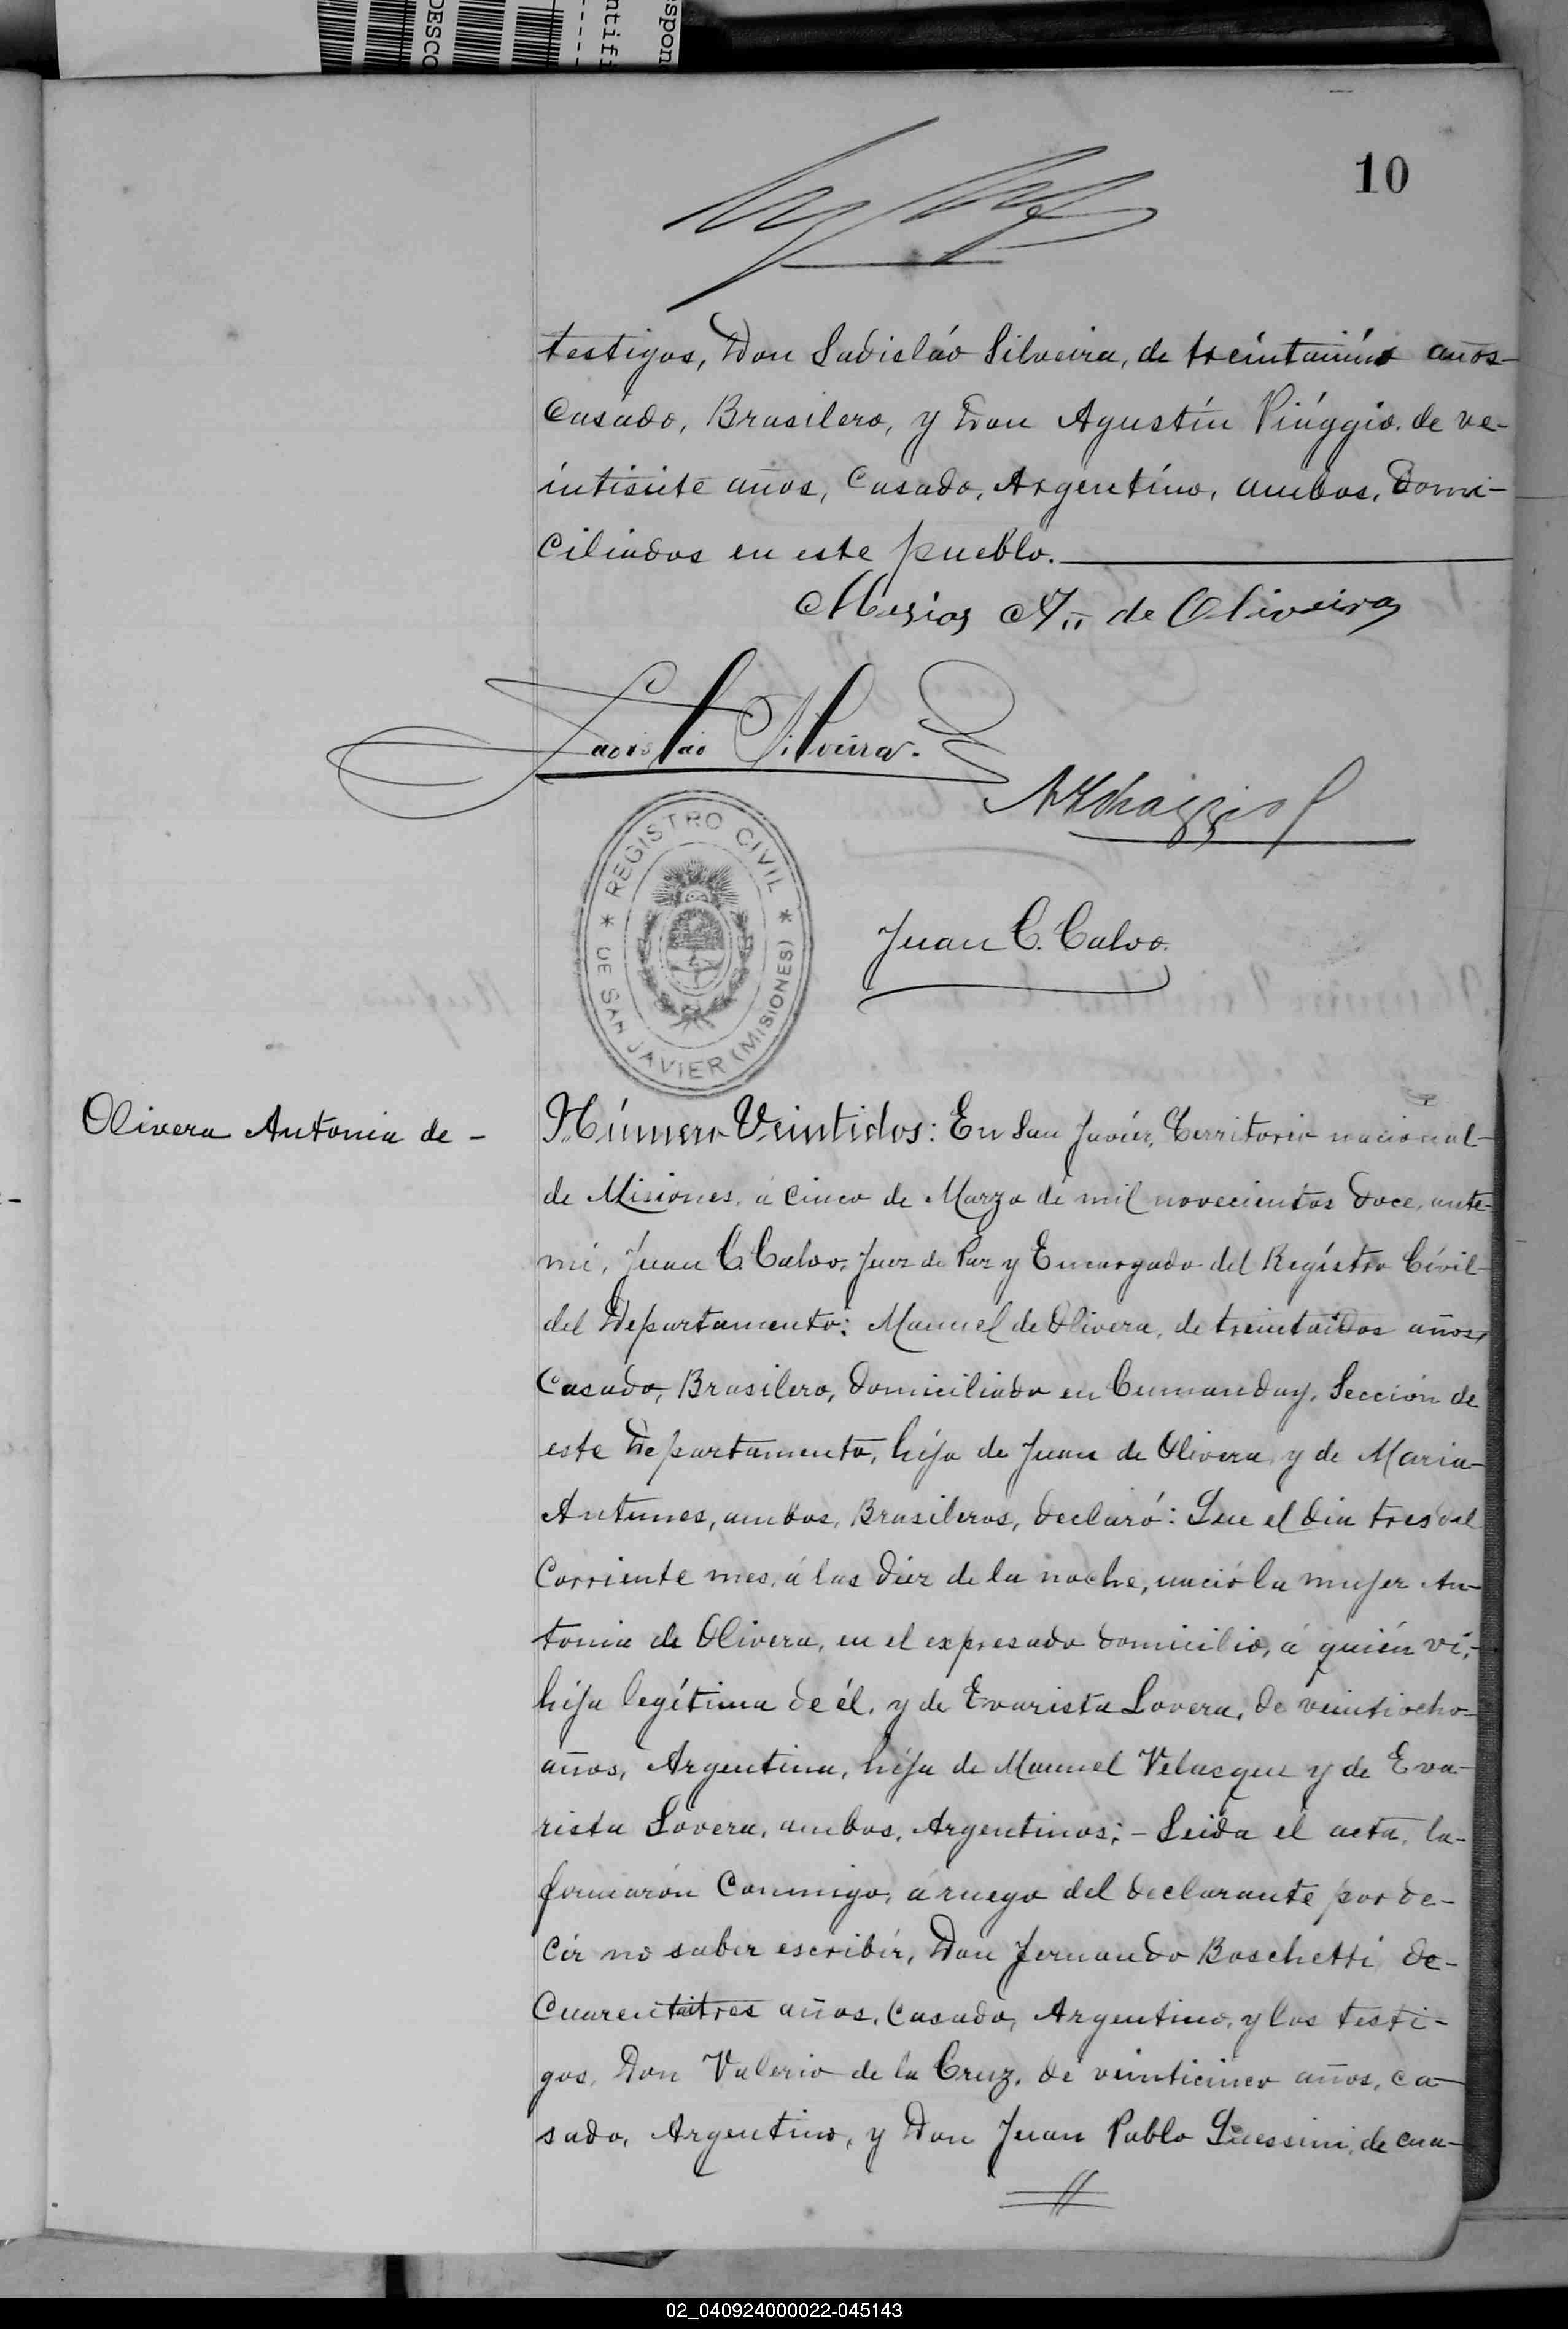 DESCO
ntifi
spon
10
testigos, Don Ladisláo Silveira, de treintaiún años-
Casado, Brasilero, y Don Agustín Viággio, de ve-
intisiete años, Casado, Argentíno, ambos, Domi-
ciliados en este pueblo.
Mesias A. de Oliveira
Ladislao Silveira.
Juan C. Calvo.
* REGISTRO CIVIL *
DE SAN JAVIER (MISIONES)
Olivera Antonia de -
Número Veintidos: En San Javiér, Territorio nacional-
de Misiones, á cinco de Marzo de mil novecientos doce, ante-
mí, Juan C. Calvo, Juez de Paz y Encargado del Regístro Cívil-
del Departamento: Manuel de Olivera, de treintaidos años,
Casado, Brasilero, domiciliado en Cumanday, Sección de
este Departamento, hijo de Juan de Olivera y de Maria-
Antunes, ambos, Brasileros, declaró: Que el dia tres del
Corriente mes, á las diez de la noche, nació la mujer An-
tonia de Olivera, en el expresado domicilio, á quién ví,-
hija legítima de él, y de Evarista Lovera, de veintiocho-
años, Argentina, hija de Manuel Velasque y de Eva-
rista Lovera, ambos, Argentinos; - Leida el acta, la-
firmarón Conmigo, á ruego del declarante por de-
cír no saber escribír, Don Fernando Boschetti de-
Cuarentaitres años, Casado, Argentino, y los testi-
gos, Don Valerio de la Cruz, de veinticinco años, ca-
sado, Argentino, y Don Juan Pablo Guessini, de cua-
02_040924000022-045143